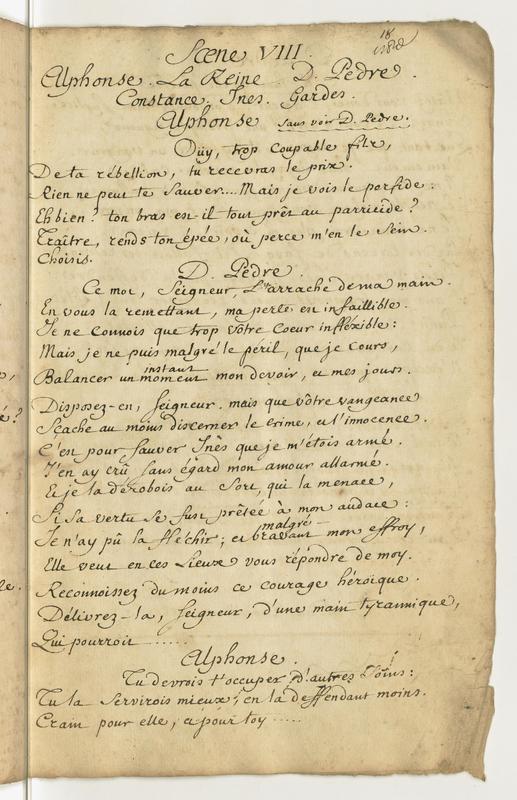 18
Scene VIII.
Alphonse. La Reine. D. Pedre.
Constance. Ines. Gardes.
Alphonse sans voir D. Pedre.
Oüy, trop coupable fils,
De ta rébellion, tu recevras le prix.
Rien ne peut te Sauver.... Mais je vois le perfide:
Eh bien? ton bras est-il tout prêt au parricide?
Traître, rends ton épée, où perce m'en le Sein.
Choisis.
D. Pédre.
Ce mot, Seigneur, L'arrache de ma main.
En vous la remettant, ma perte est infaillible.
Je ne connois que trop vôtre Coeur infléxible:
Mais je ne puis malgré le péril, que je cours,
instant
Balancer un moment mon devoir, et mes jours.
Disposez-en, Seigneur. mais que vôtre vangeance
Sçache au moins discerner le Crime, et l'innocence.
C'est pour sauver Inès que je m'étois armé.
J'en ay crû sans égard mon amour allarmé.
Et je la dérobois au Sort, qui la menace,
Si Sa vertu se fust prêtée à mon audace:
malgré
Je n'ay pû la fléchir; et bravant mon effroy,
Elle veut en ces Lieux vous répondre de moy.
Reconnoissez du moins ce courage héroique.
Délivrez-la, Seigneur, d'une main tyrannique,
Qui pourroit ......
Alphonse.
Tu devrois t'occuper d'autres Soins:
Tu la Servirois mieux, en la deffendant moins.
Crain pour elle, et pour toy .....